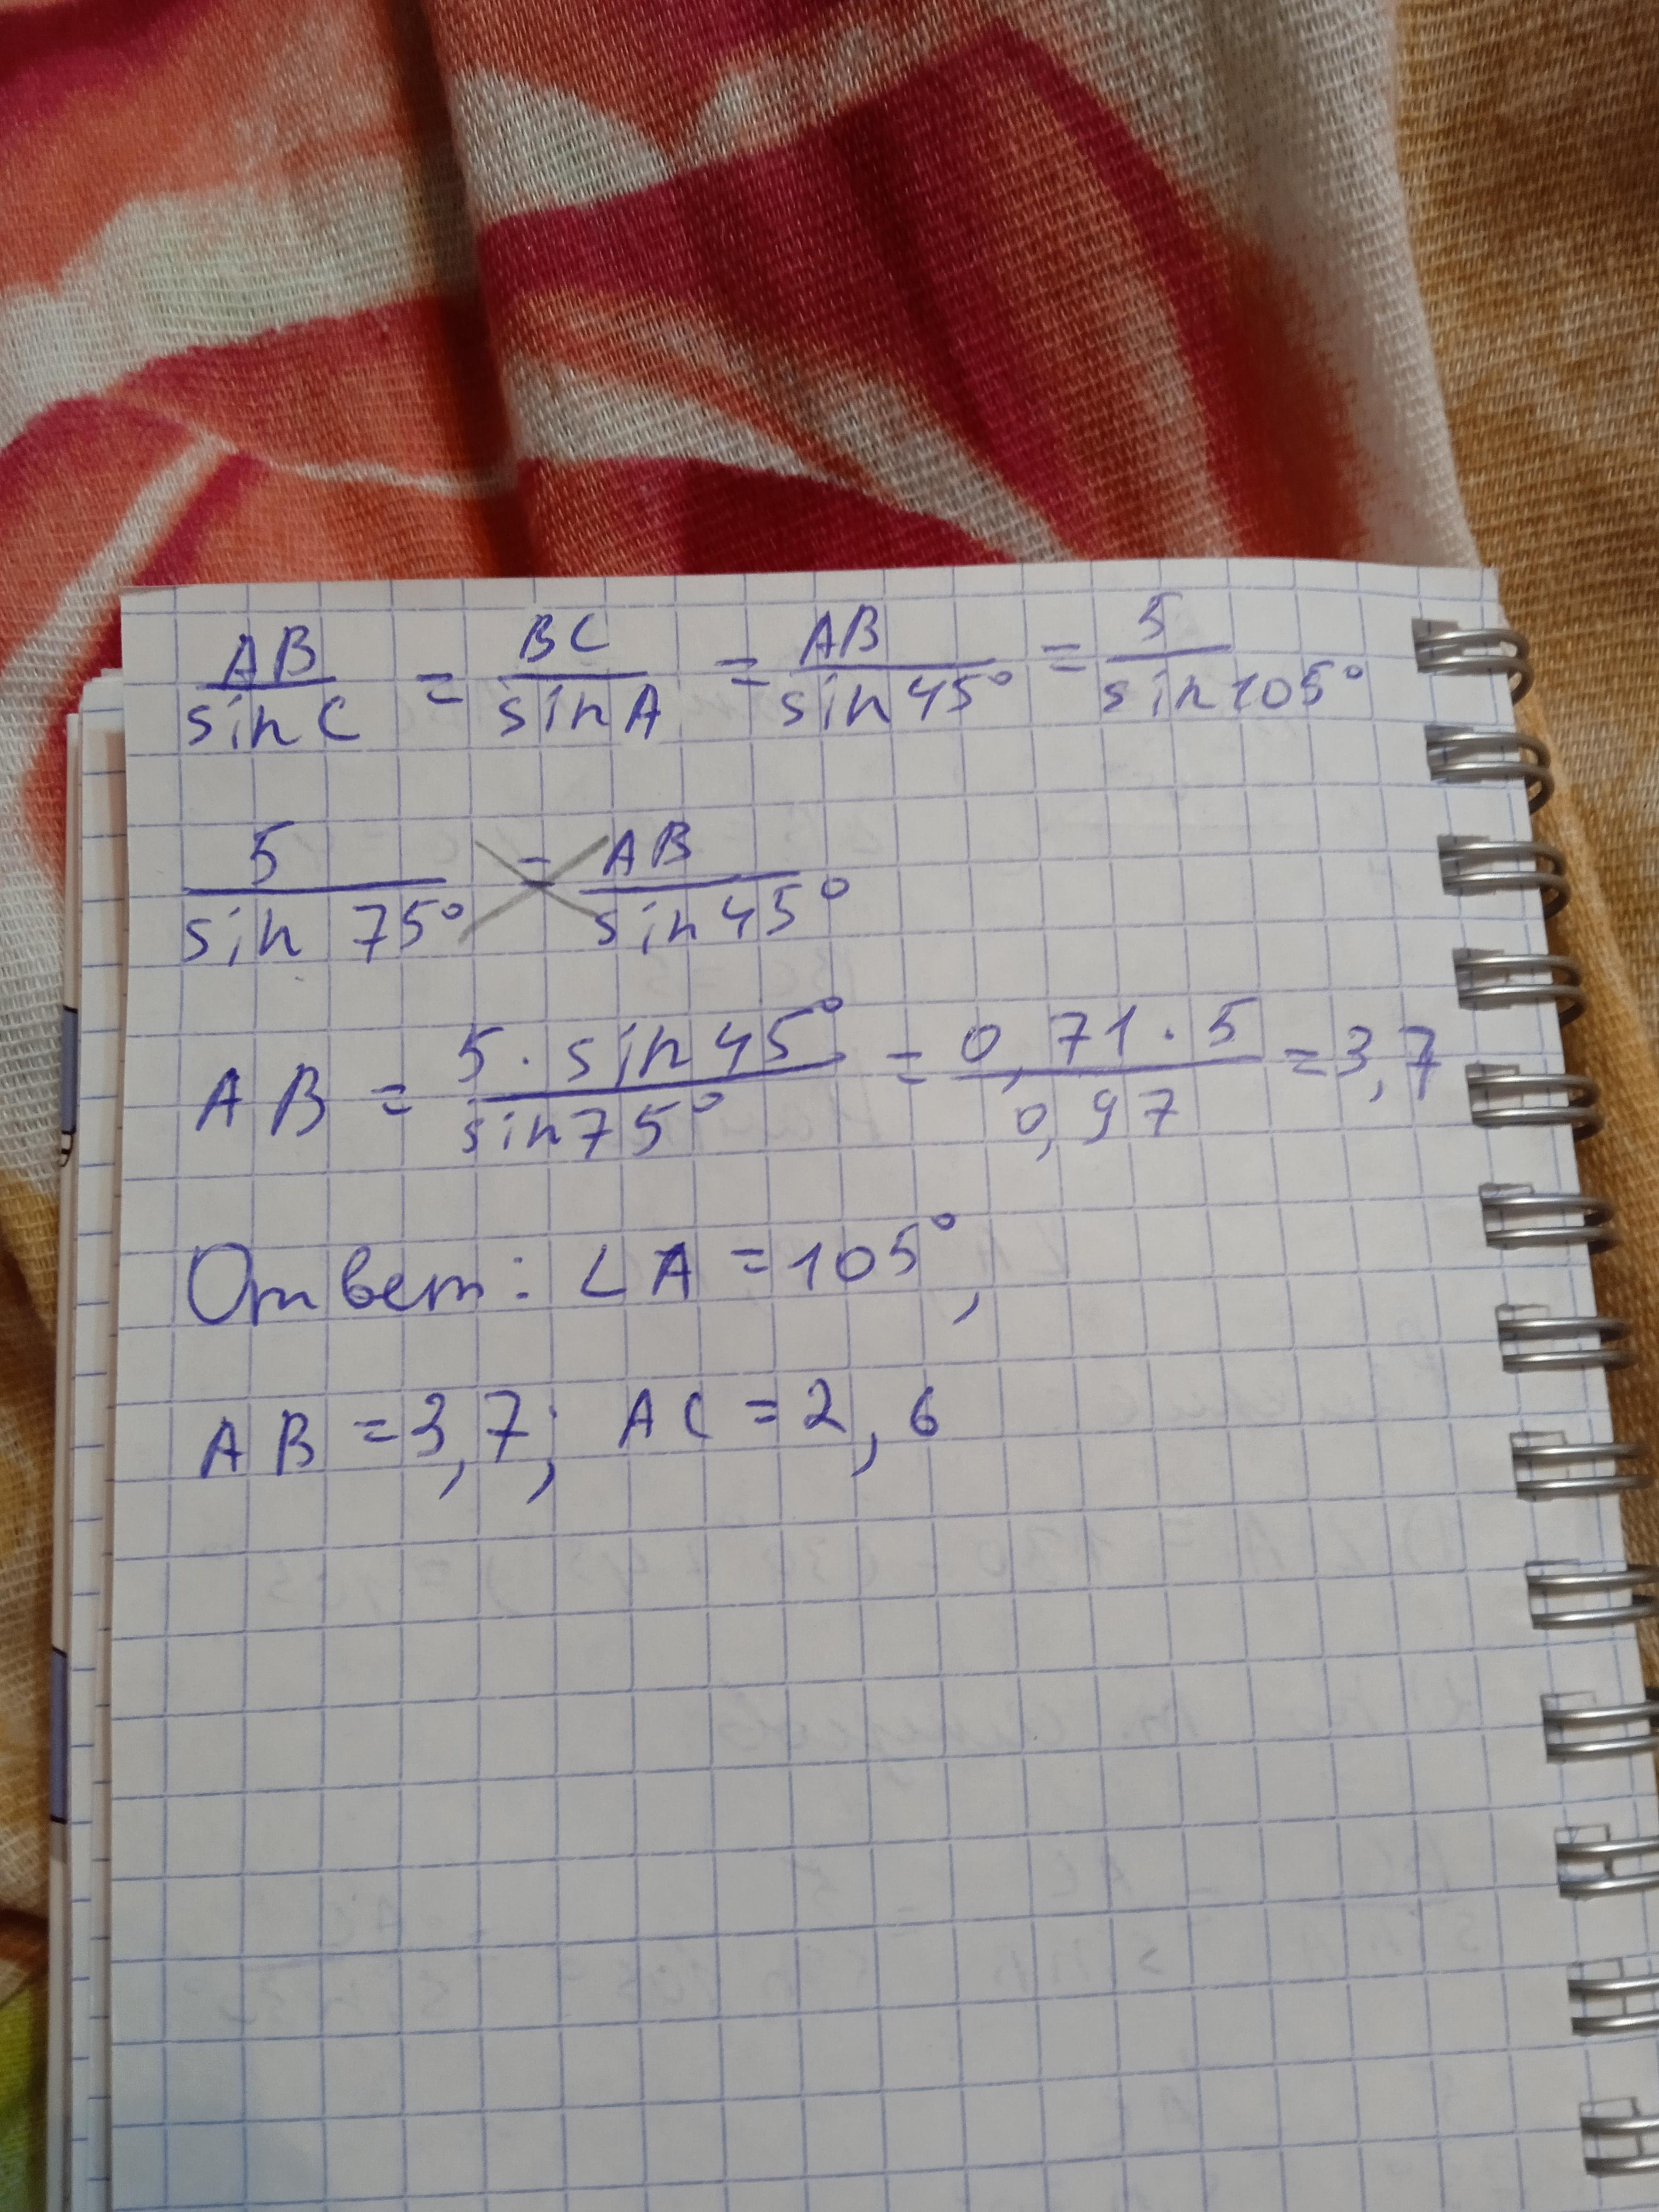 AB/sin C = BC/sin A = AB/sin 45° = 5/sin 105°
5/sin 75° = AB/sin 45°
AB = 5 · sin 45°/sin 75° = 0,71 · 5/0,97 = 3,7
Ответ: ∠A = 105°,
AB = 3,7; AC = 2,6